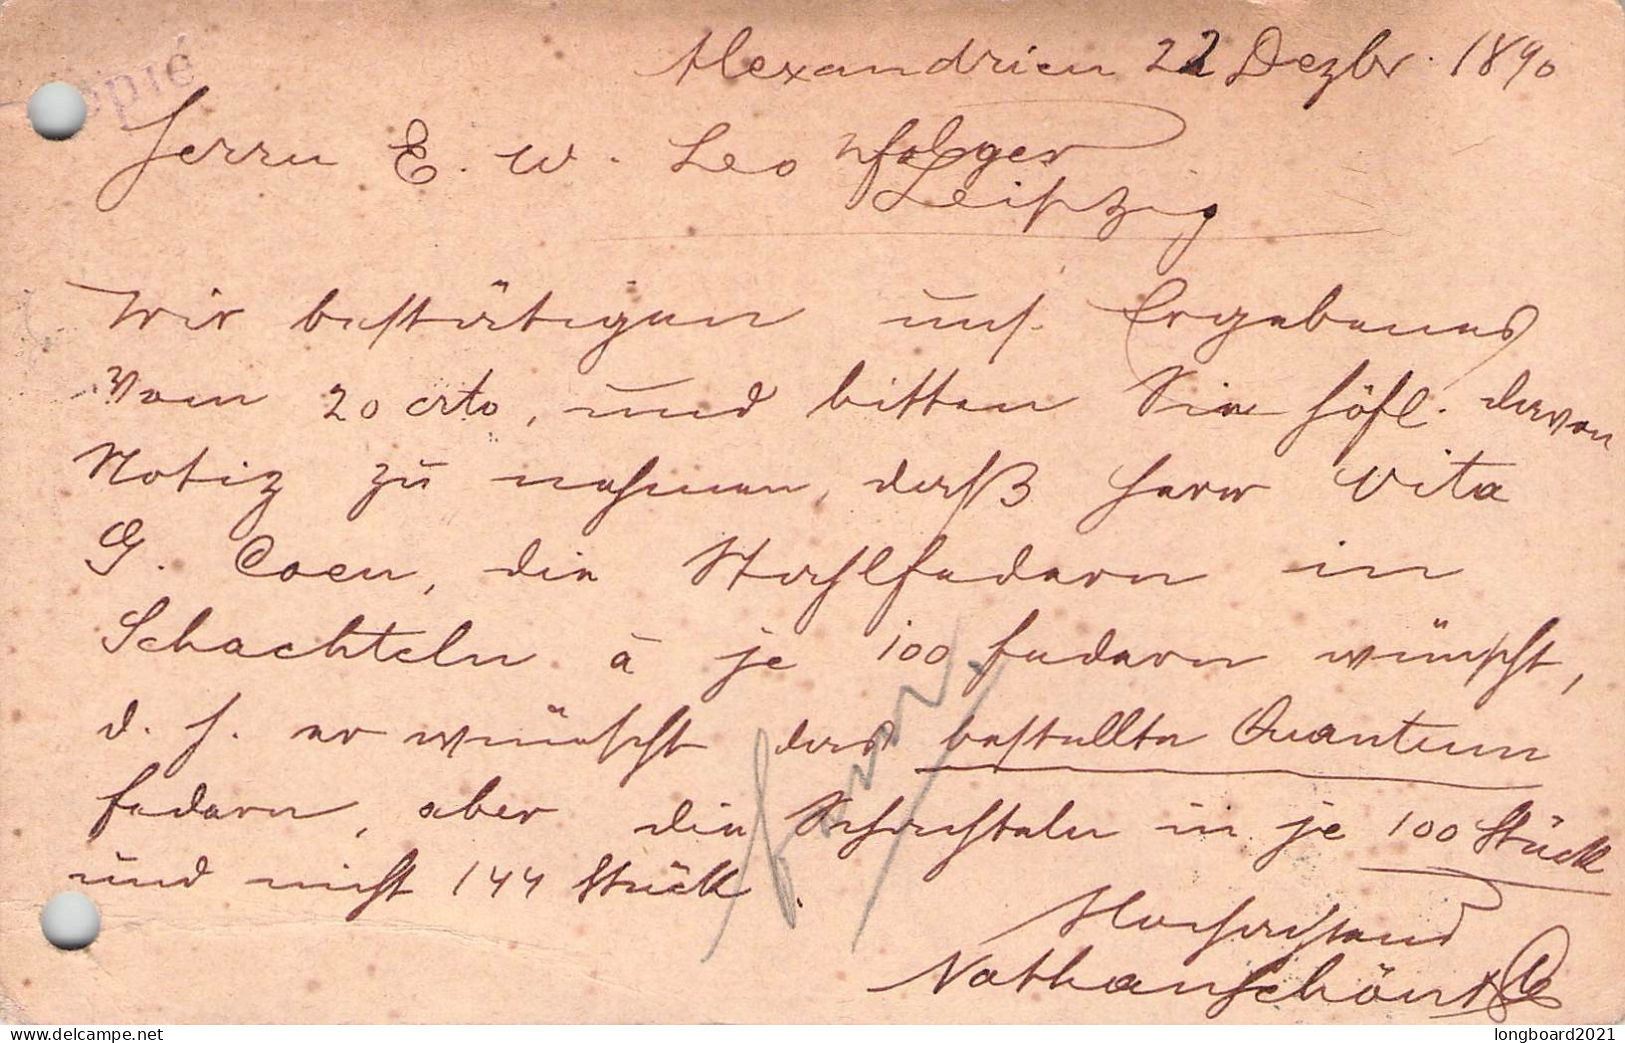 Copié
Alexandrien 22 Dezbr. 1890
Herrn E. W. Leo Nfolger
Leipzig
Wir bestätigen uns. Ergebenes
vom 20 crto, und bitten Sie höfl. davon
Notiz zu nehmen, daß Herr Vita
G. Coen, die Stahlfedern in
Schachteln à je 100 Federn wünscht,
d. h. er wünscht das bestellte Quantum
Federn, aber die Schachteln in je 100 Stück
und nicht 144 Stück.
Hochachtend
Nathanschön & Co
longboard2021